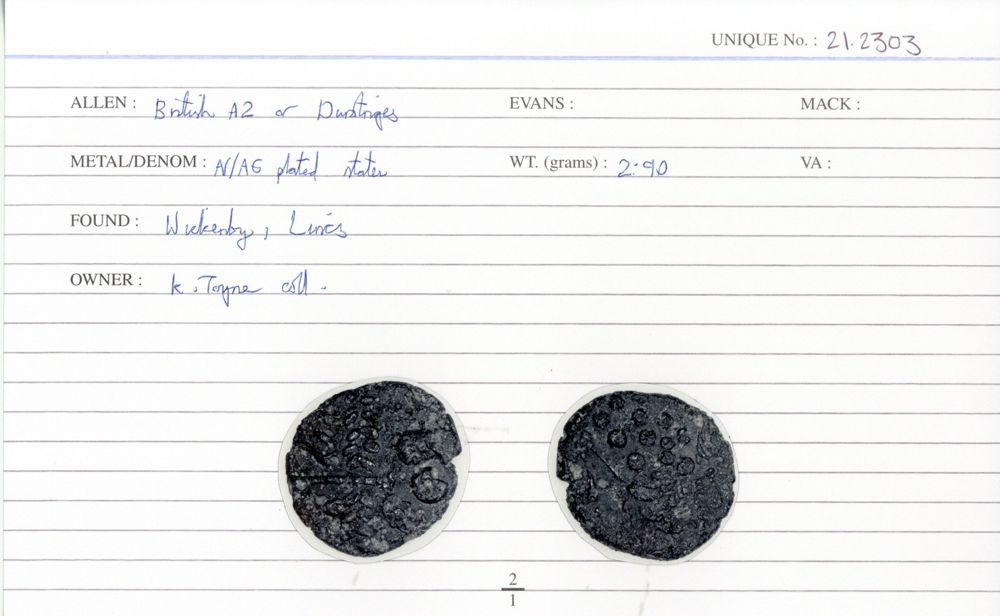 UNIQUE No. : 21.2303
ALLEN : British A2 or Durotriges EVANS : MACK :
METAL/DENOM : N/AG plated stater WT. (grams) : 2.90 VA :
FOUND : Wickenby, Lincs
OWNER : K. Toyne coll.
2
1